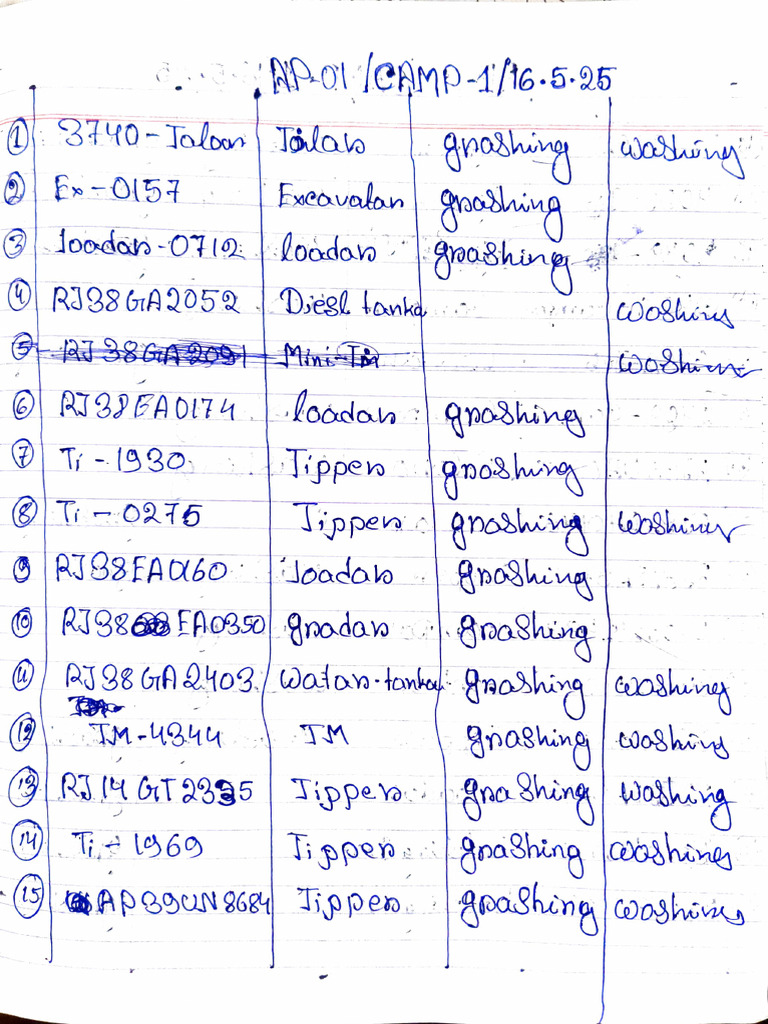 AP-01/CAMP-1/16.5.25
① 3740-Taloar Toilar grashing washing
② Ex-0157 Excavatar grashing
③ loadar-0712 loadar grashing
④ RJ38GA2052 Diesl tanka washing
⑤ RJ38GA2091 Mini-TM washing
⑥ RJ38EA0174 loadar grashing
⑦ Ti-1930 Tipper grashing
⑧ Ti-0275 Tipper grashing washing
⑨ RJ38EA0160 loadar grashing
⑩ RJ38EA0350 gradar grashing
⑪ RJ38GA2403 watar-tankar grashing washing
⑫ TM-4344 TM grashing washing
⑬ RJ14GT2335 Tipper grashing washing
⑭ Ti-1969 Tipper grashing washing
⑮ AP39UN8684 Tipper grashing washing